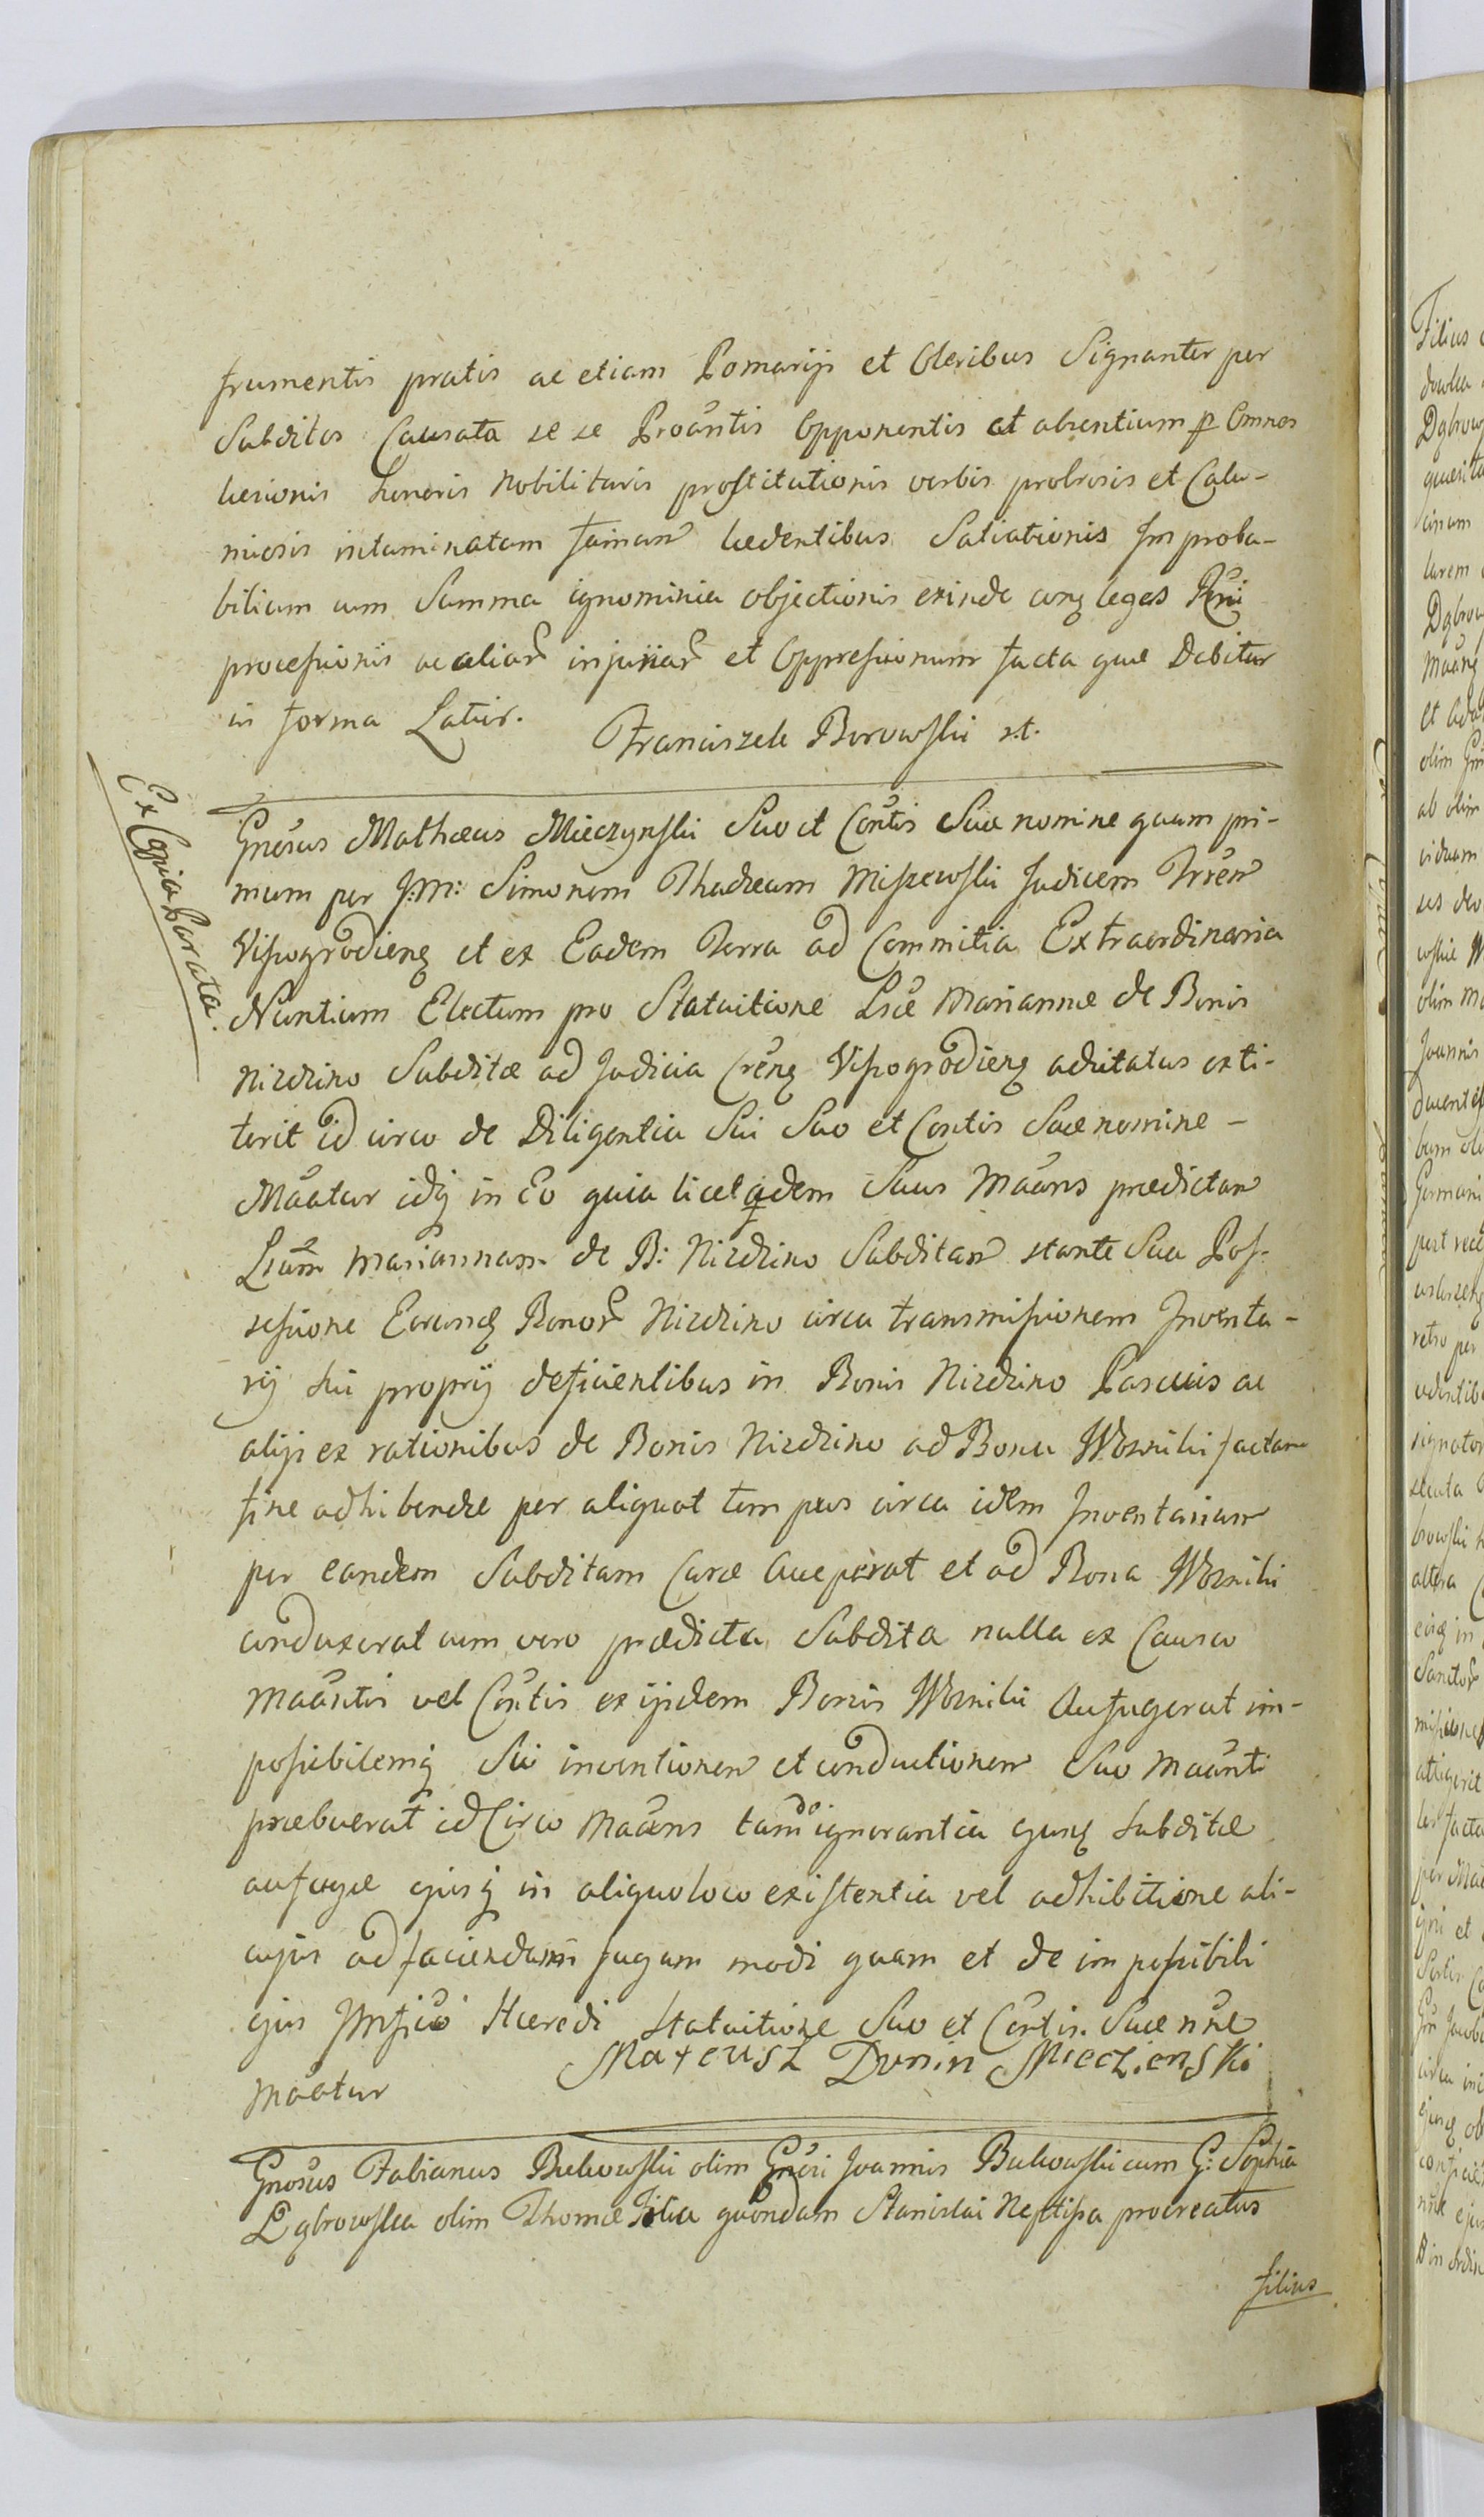 frumentis pratis ac etiam Pomarijs et Oleribus Signanter per
Subditos Causata se se Proântis Opponentis et absentium p Omnes
læsionis honoris Nobilitaris prostitutionis verbis probrosis et Calu-
miosis intaminatam famam lædentibus Satiationis Improba-
bilium cum Summa ignominia objectionis exinde conq leges Rni
processionis ac aliar injuriar et Oppressionum facta quæ Debitur
in forma Latius. Franciszek Borowski s.t.
Ex Copia Parata.
Gnosus Mathæus Mieczynski Suo et Contis Suæ nomine quam pri-
mum per J:M: Simonem Thadæum Miszewski Judicem Trren
Vissogrodienq et ex Eadem Terra ad Commitia Extraordinaria
Nuntium Electum pro Statuitione Lsæ Mariannæ de Bonis
Nizdzino Subditæ ad Judicia Crenq Vissogrodienq aditatus exti-
terit id circo de Diligentia Sui Suo et Contis Suæ nomine -
Maatur idq in Eo quia licet qdem Suus Maans prædictam
Lsam Mariannam de B: Nizdzino Subditam stante Sua Pos-
sessione Eorundq Bonor Nizdzino circa transmissionem Inventa-
rij Sui proprij deficientibus in Bonis Nizdzino Pascuis ac
alijs ex rationibus de Bonis Nizdzino ad Bona Wozniki factam
fine adhibendæ per aliquot tempus circa idem Inventarium
per eandem Subditam Caræ acceperat et ad Bona Wozniki
conduxerat cum vero prædicta Subdita nulla ex Causa
Maantis vel Contis ex ijsdem Bonis Wozniki Aufugerat im-
possibilemq Sui inventionem et conductionem Suo Maanti
præbuerat id Circo Maans tam do ignorantia ejusq Subditæ
aufugæ ejusq in aliquo loco existentia vel adhibitione ali-
cujus ad faciendam fugam modi quam et de impossibili
ejus Mfico Hæredi Statuitione Suo et Contis Suæ nne
Maatur Mateusz Dunin Mieczienski
Gnosus Fabianus Bukowski olim Gnosi Joannis Bukowski cum G: Sophia
Dąbrowska olim Thomæ Filia quondam Stanislai Neptissa procreatus
filius